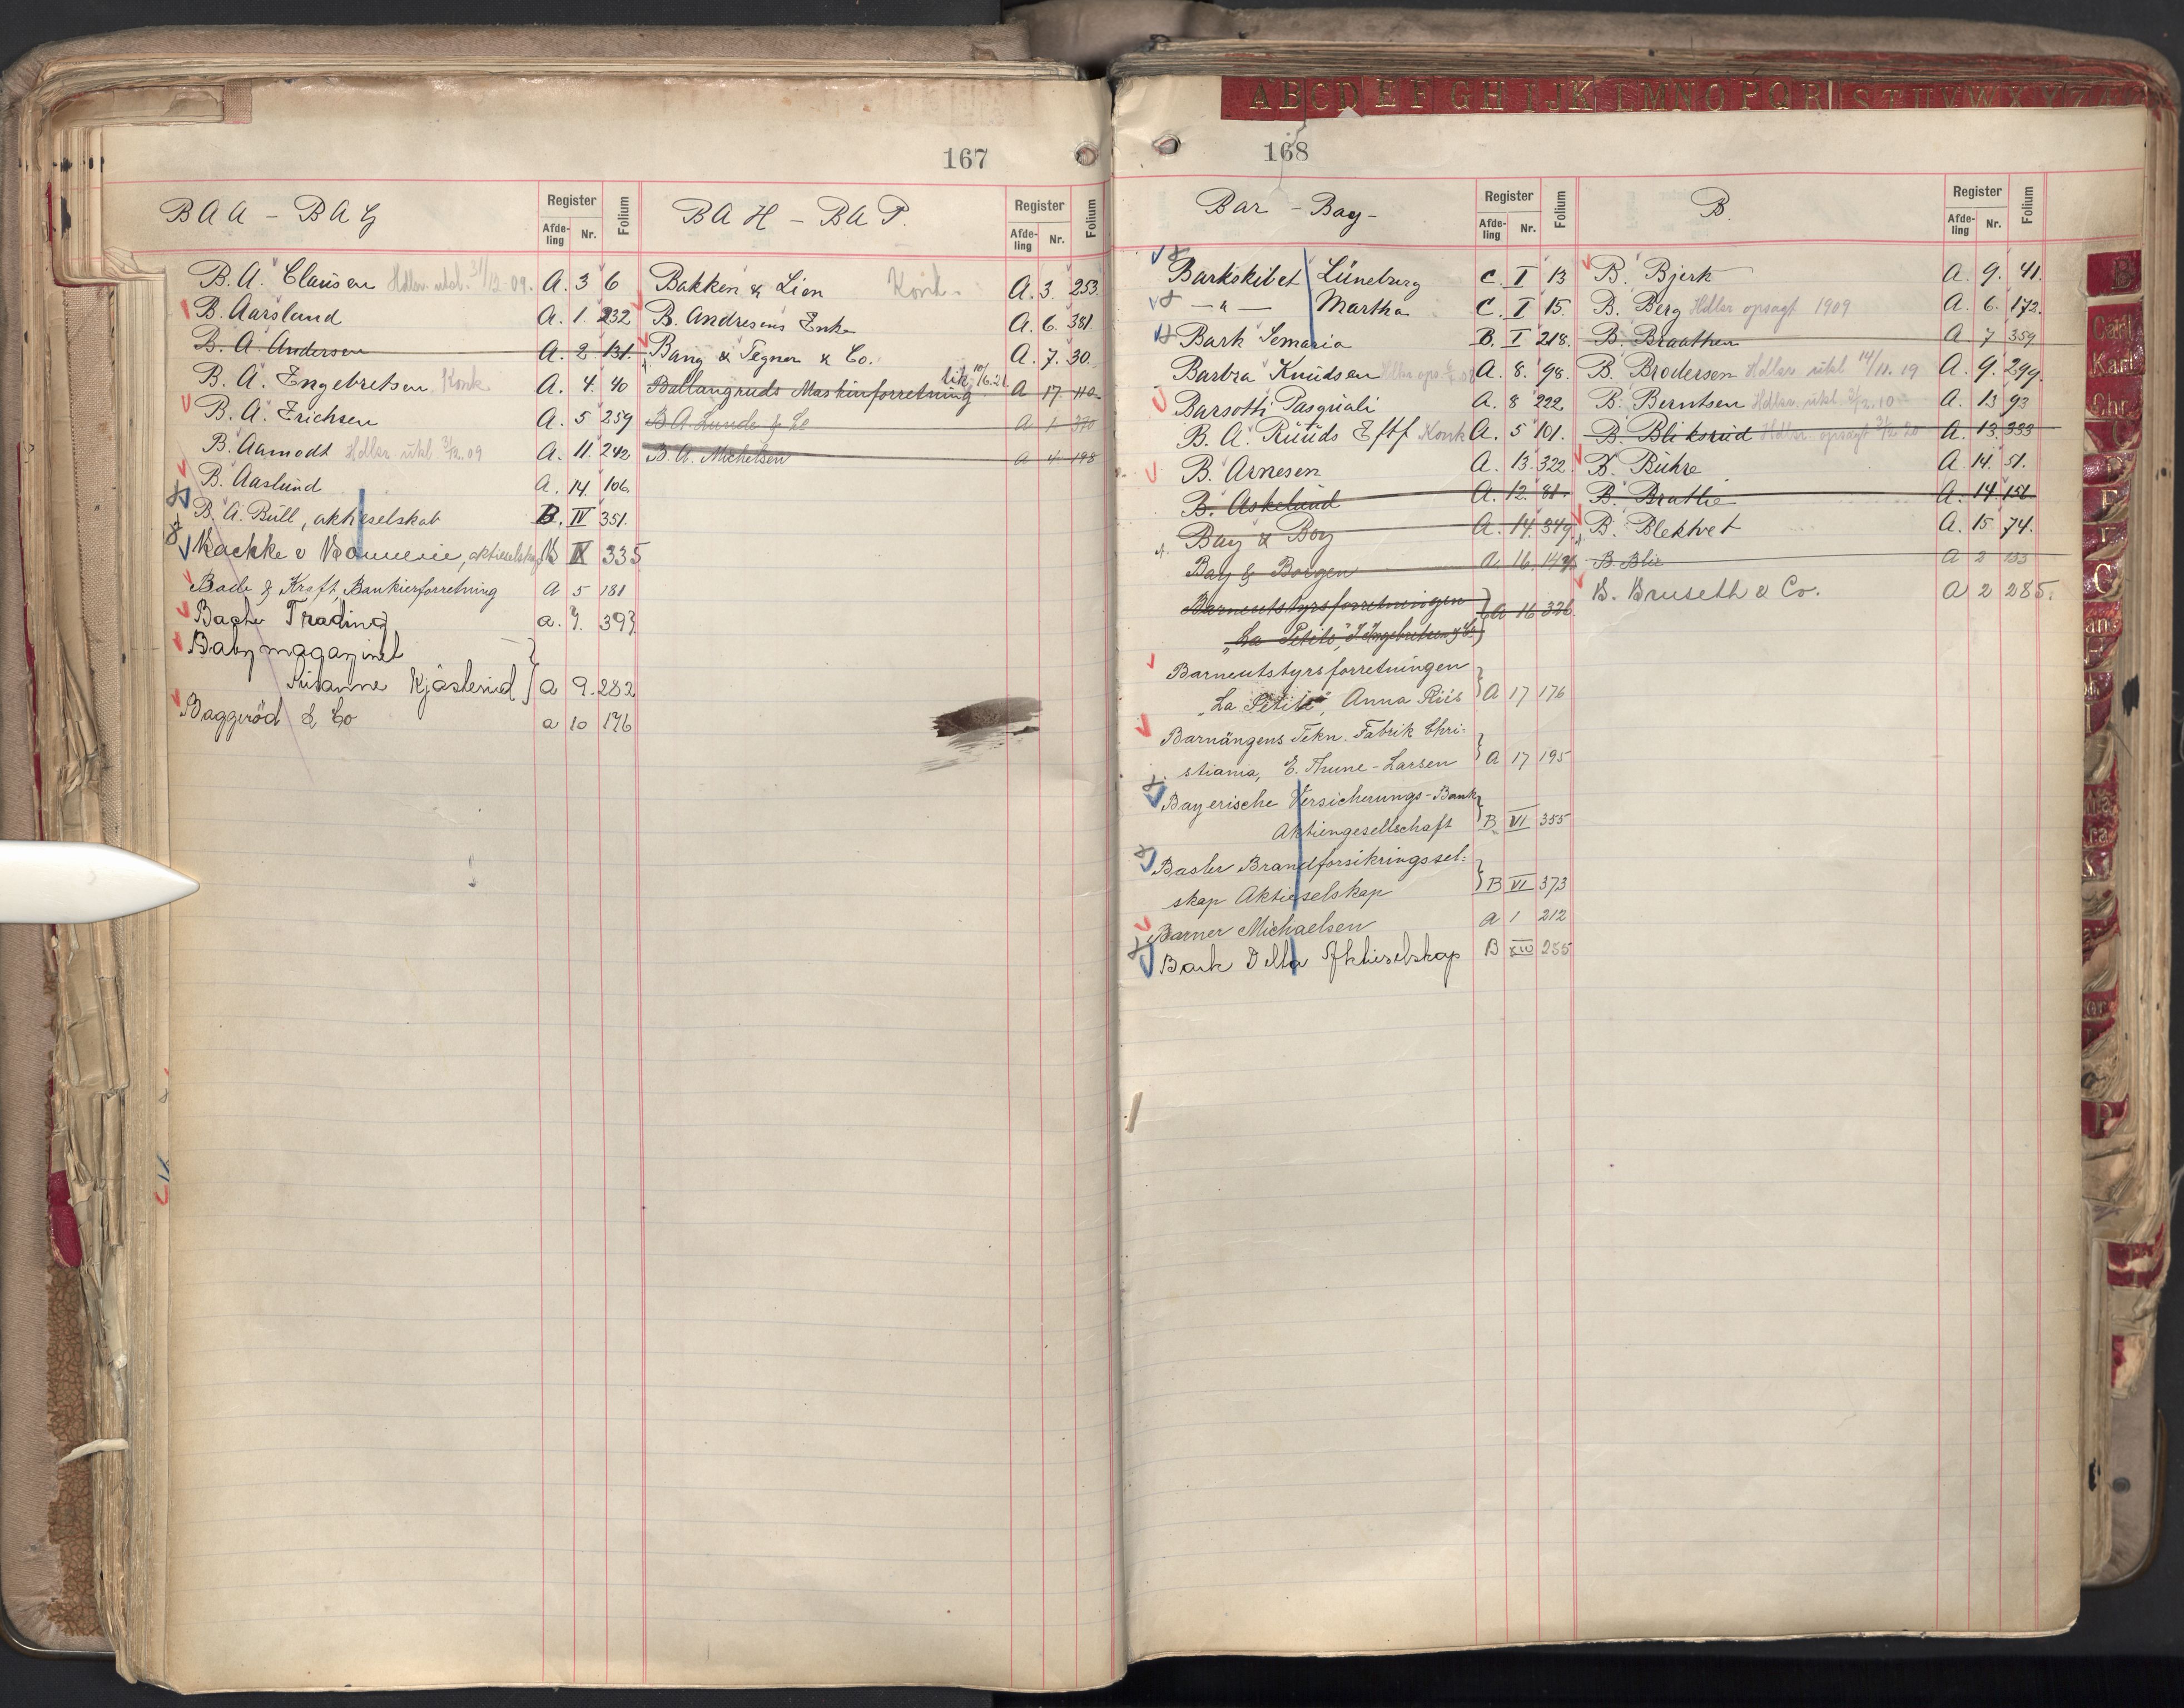 167
BAA - BAG
Register
Afde-ling
Nr.
Folium
B. A. Clausen Hdlsr. utsl. 31/12-09. A. 3 6
B. Aarsland A. 1. 232
B. A. Andersen A. 2 131.
B. A. Engebretsen Konk. A. 4. 40
B. A. Erichsen A. 5 259
B. Aamodt Hdlsr. utsl. 09 A. 11. 242
B. Aaslund A. 14. 106.
B. A. Bull, aktieselskab B. IV 351.
aktieselskap 335
Bade & Kraft, Bankierforretning A 5 181
Bache Trading a. 7. 397
Babymagazinet
Susanne Kjøsterud a 9. 282
Baggerød & Co a 10 176
BAH - BAP.
Register
Afde-ling
Nr.
Folium
Bakken & Lien Konk. A. 3. 253.
B. Andresens Enke A. 6. 381.
Bang & Tegner & Co. A. 7. 30.
Ballangruds Maskinforretning lik. 10/6.21 A 17 110
B. A. Lunde & Co A 1 370
B. A. Michelsen A 4 198
ABCDEFGHIJKLMNOPQRSTUVWXYZ
168
Bar - Bay -
Register
Afde-ling
Nr.
Folium
Barkskibet Lüneburg C. I 13
— " — Martha C. I 15.
Bark Semaria B. I 218.
Barbra Knudsen A. 8. 98.
Barsotti Pasquali A. 8 222
B. A. Ruuds Eftf Konk A. 5 101.
B. Arnesen A. 13. 322.
B. Askelund A. 12. 81.
Bay & Boy A. 14. 349.
Bay & Borgen A. 16. 142
Barneutstyrsforretningen
"La Petite", I. Ingebretsen & Co A 16 326.
Barneutstyrsforretningen
"La Petite", Anna Riis A 17 176
Barnängens Tekn. Fabrik Chri-
stiania, E. Thune-Larsen A 17 195
Bayerische Versicherungs-Bank
Aktiengesellschaft B VI 355
Basler Brandforsikringssel-
skap Aktieselskap B VI 373
Barner Michaelsen a 1 212
Bark Della Aktieselskap B XIV 255
B.
Register
Afde-ling
Nr.
Folium
B. Bjerk A. 9. 41.
B. Berg Hdlsr opsagt 1909 A. 6. 172.
B. Braathen A 7 359
B. Brodersen Hdlsr utsl 14/11.19 A. 9. 299.
B. Berntsen Hdlsr. utsl. A. 13 93
B. Bliksrud Hdlsr. opsagt A. 13. 333
B. Buhre A 14. 51.
B. Brathe A. 14 151
B. Blektvet A. 15 74.
B. Blix A 2 133
B. Bruseth & Co. a 2 285.